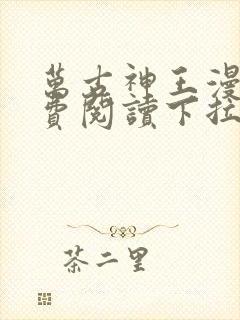 萬古神王漫
費閱讀下拉
茶二里